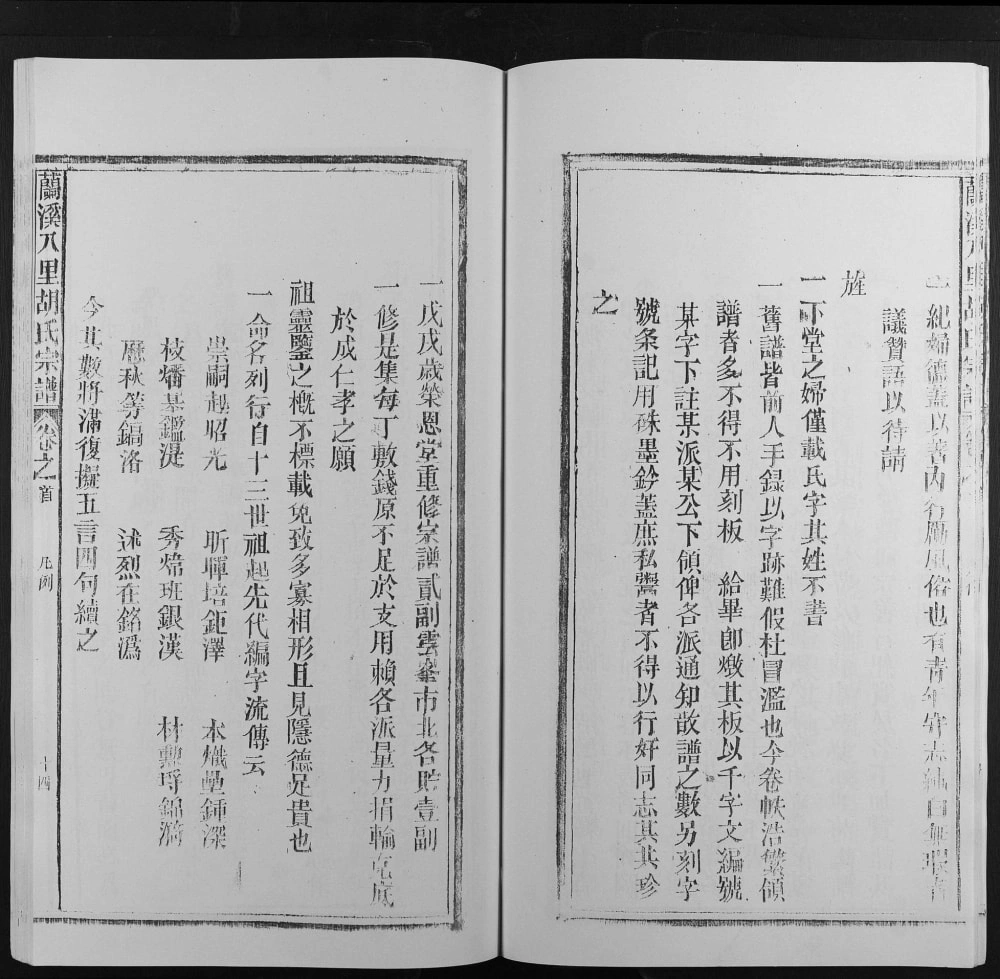 一紀婦德蓋以著內行勵風俗也有青年守志
議贊語以待請
旌
一下堂之婦僅載氏字其姓不書
一舊譜皆前人手錄以字跡難假杜冒濫也今卷帙浩繁領
譜者多不得不用刻板　給畢卽燬其板以千字文編號
某字下註某派某公下領俾各派通知散譜之數另刻字
號条記用硃墨鈐蓋庶私鬻者不得以行奸同志其共珍
之
蘭溪八里胡氏宗譜 卷之首 凡例 十四
一戊戌歲榮恩堂重修宗譜貳副雲峯市北各貯壹副
一修是集每丁敷錢原不足於支用賴各派量力捐輸克底
於成仁孝之願
祖靈鑒之槪不標載免致多寡相形且見隱德足貴也
一命名列行自十三世祖起先代編字流傳云
崇嗣起昭光　昕暉培鉅澤　本熾壘鍾深
枝燔基鑑湜　秀煒班銀漢　材勳埒錦漪
歷秋等鎬洛　述烈在銘潙
今其數將滿復擬五言四句續之